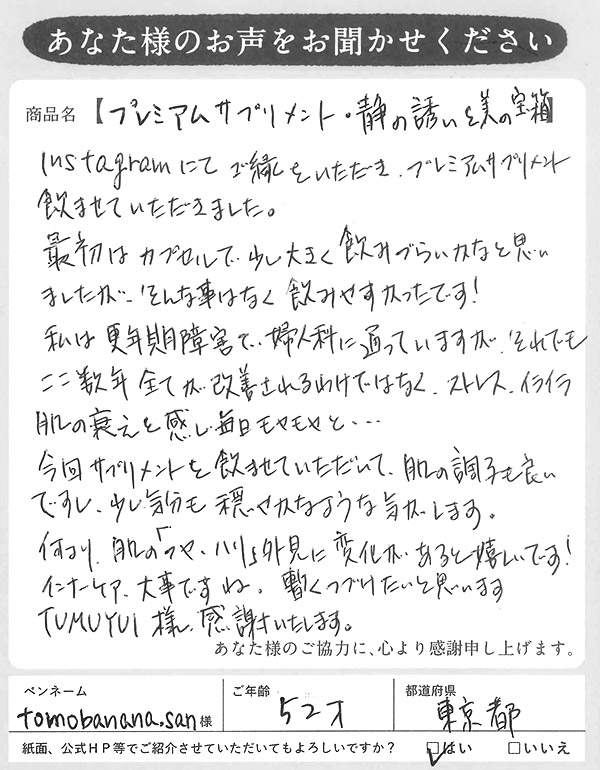 あなた様のお声をお聞かせください
商品名 【プレミアムサプリメント・静の誘いと美の宝箱】
Instagramにてご縁をいただき、プレミアムサプリメント
飲ませていただきました。
最初はカプセルで少し大きく飲みづらいかなと思い
ましたが、そんな事はなく飲みやすかったです!
私は更年期障害で、婦人科に通っていますが、それでも
ここ数年全てが改善されるわけではなく、ストレス、イライラ
肌の衰えを感じ毎日モヤモヤと・・・
今回サプリメントを飲ませていただいて、肌の調子も良い
ですし、少し気分も穏やかなような気がします。
何より、肌の「つや、ハリ」外見に変化があると嬉しいです!
インナーケア、大事ですね。暫くつづけたいと思います
TUMUYUI様、感謝いたします。
あなた様のご協力に、心より感謝申し上げます。
ペンネーム ご年齢 都道府県
tomobanana.san様 52才 東京都
紙面、公式HP等でご紹介させていただいてもよろしいですか? ☑はい □いいえ